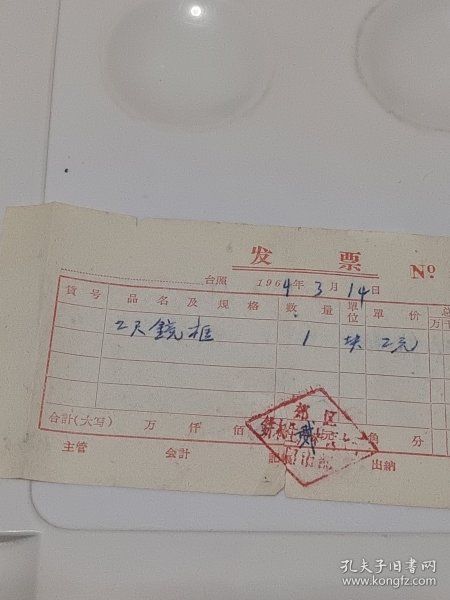 发 票 Nº
台照 1964年3月14日
貨号 品名及規格 数量 單位 單价 总 万
2尺鏡框 1 块 2元
合計(大写) 万 仟 佰 角 分
郊区
主管 会計 記賬 出納
孔夫子旧书网
www.kongfz.com